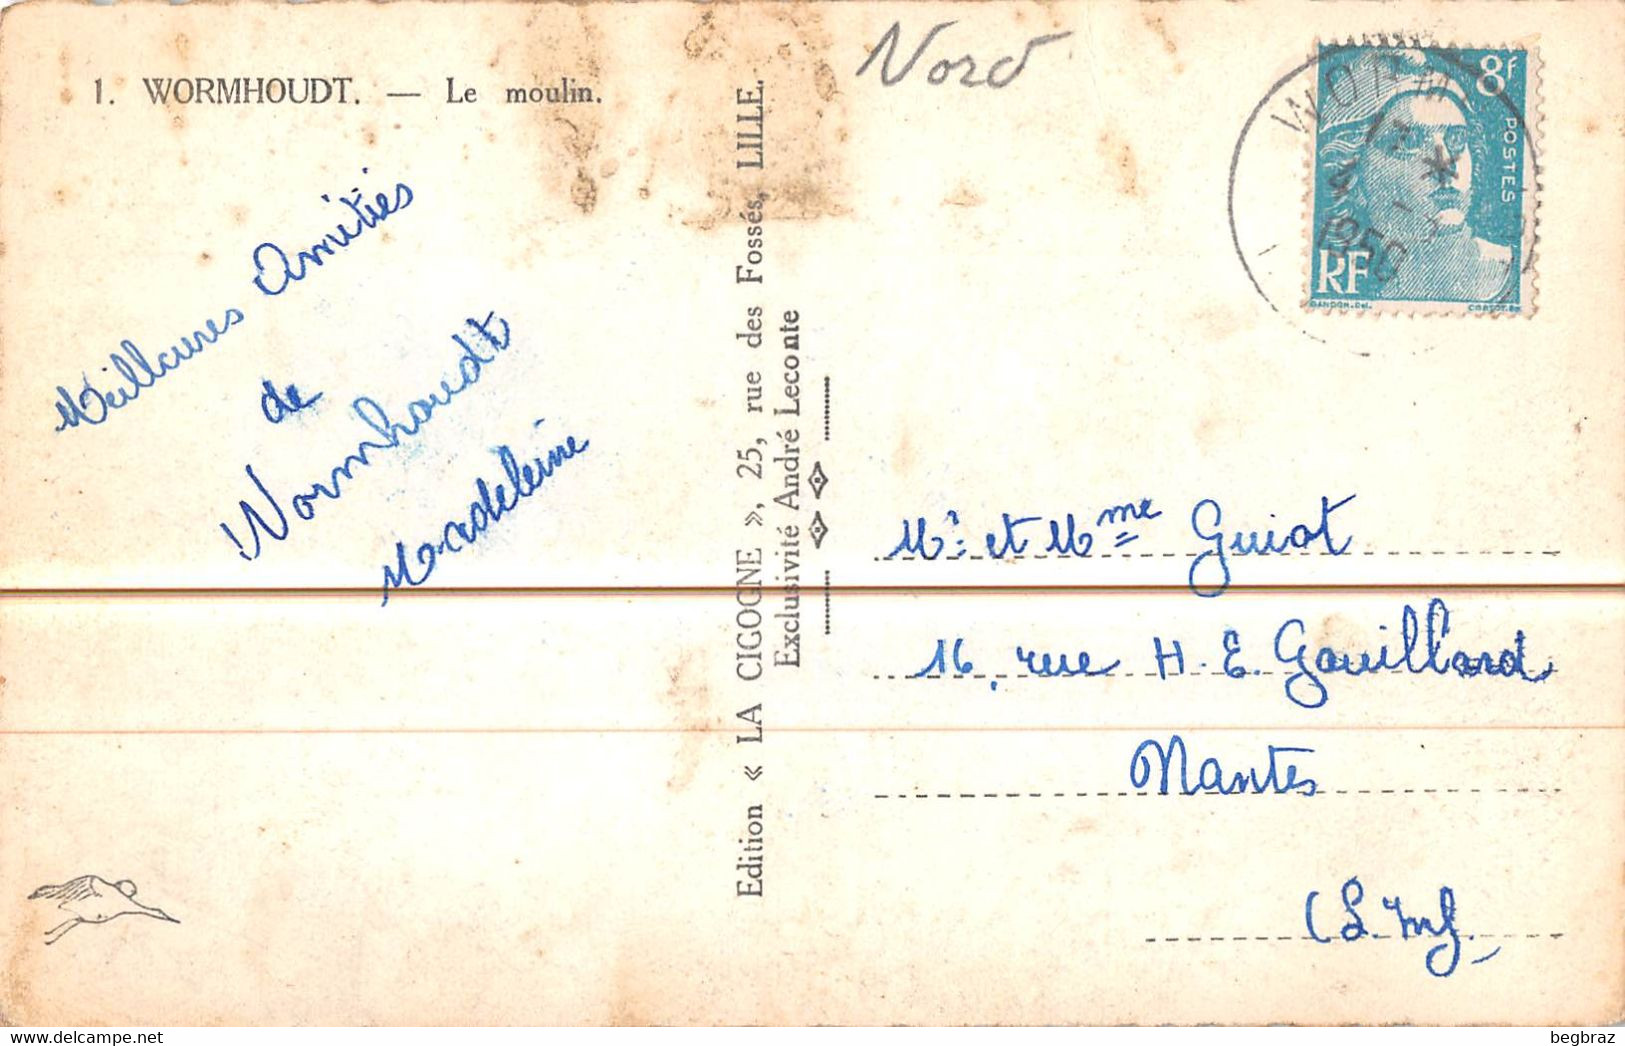 1. WORMHOUDT. — Le moulin.
Meilleures Amitiés
de
Wormhoudt
Madeleine
Edition « LA CIGOGNE », 25, rue des Fossés, LILLE.
Exclusivité André Leconte
Nord
WORM
1950
8f
POSTES
RF
GANDON.Del.
Mr et Mme Guiot
16, rue H. E. Gouillard
Nantes
(L. Inf.
begbraz